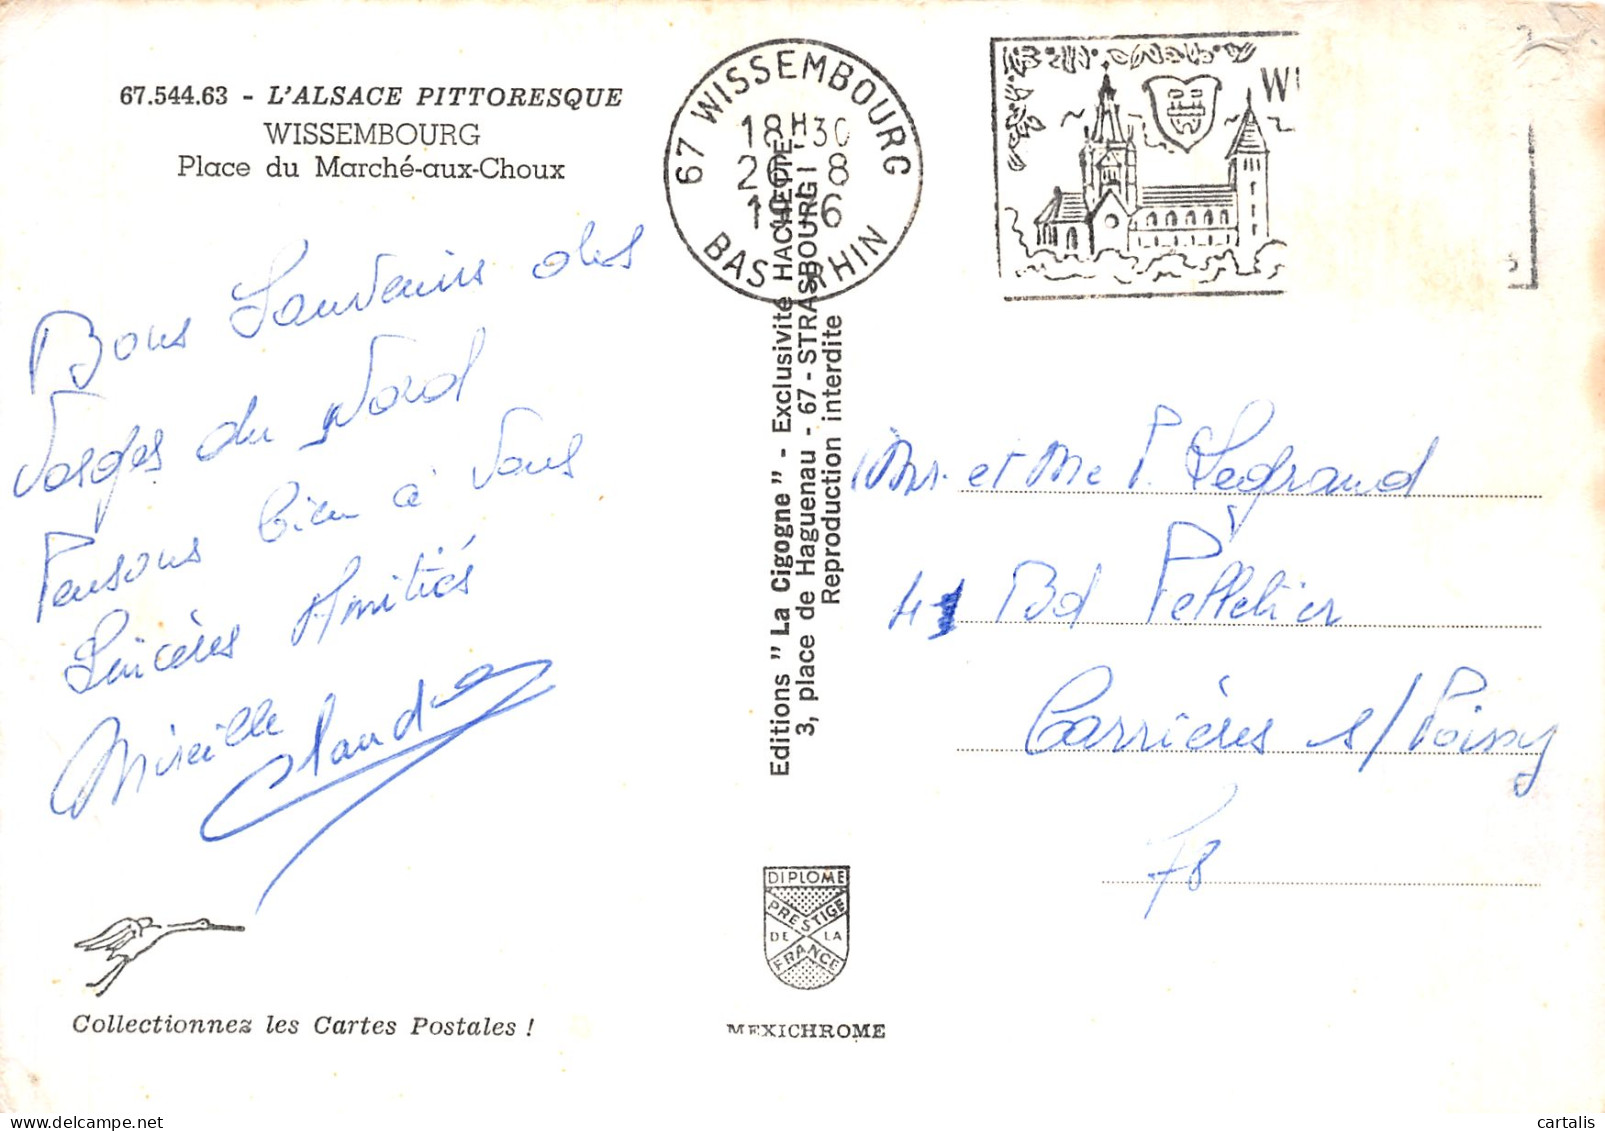 67.544.63 - L'ALSACE PITTORESQUE
WISSEMBOURG
Place du Marché-aux-Choux
Bons Souvenirs des
Vosges du Nord
Pensons bien à Vous
Sincères Amitiés
Mireille Claude
Collectionnez les Cartes Postales !
67 WISSEMBOURG
18H30
26 8
1976
BAS RHIN
Editions " La Cigogne " - Exclusivité HACHETTE
3, place de Haguenau - 67 - STRASBOURG
Reproduction interdite
DIPLOME
PRESTIGE
DE LA
FRANCE
MEXICHROME
W
Mr. et Me P. Legrand
41 Bd Pelletier
Carrières s/ Poissy
78
cartalis